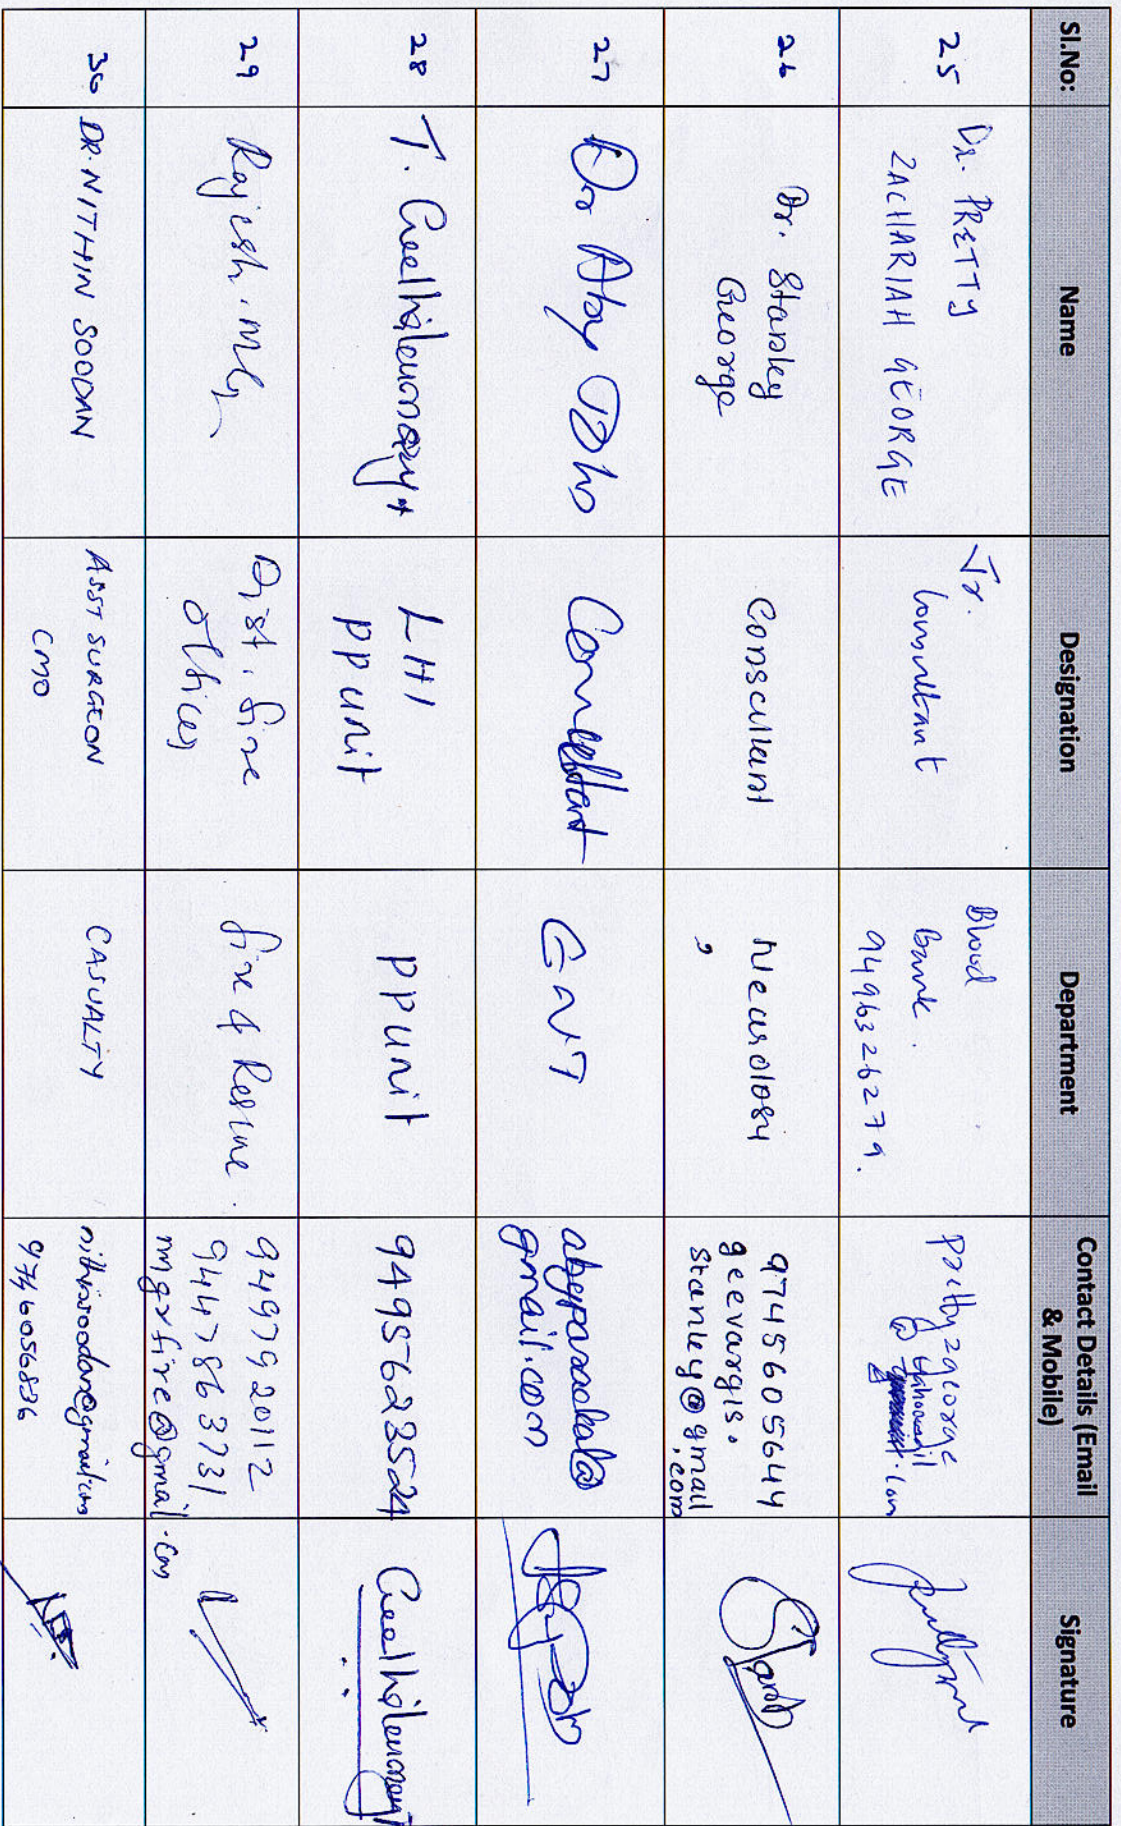 Sl.No:
Name
Designation
Department
Contact Details (Email
& Mobile)
Signature
25
Dr. PRETTY
ZACHARIAH GEORGE
Jr.
Consultant
Blood
Bank.
9496326279.
26
Dr. Stanley
George
Consultant
Neurology
9745605644
geevargis.
stanley@gmail
.com
27
Dr Aby John
Consultant
ENT
gmail.com
28
LHI
PP unit
PP unit
9495623524
29
Rajesh.
Dist. fire
Officer
fire & Rescue.
9497920112
9447863731
mgrfire@gmail.com
30
DR. NITHIN SOODAN
ASST SURGEON
CMO
CASUALTY
nithinsoodan@gmail.com